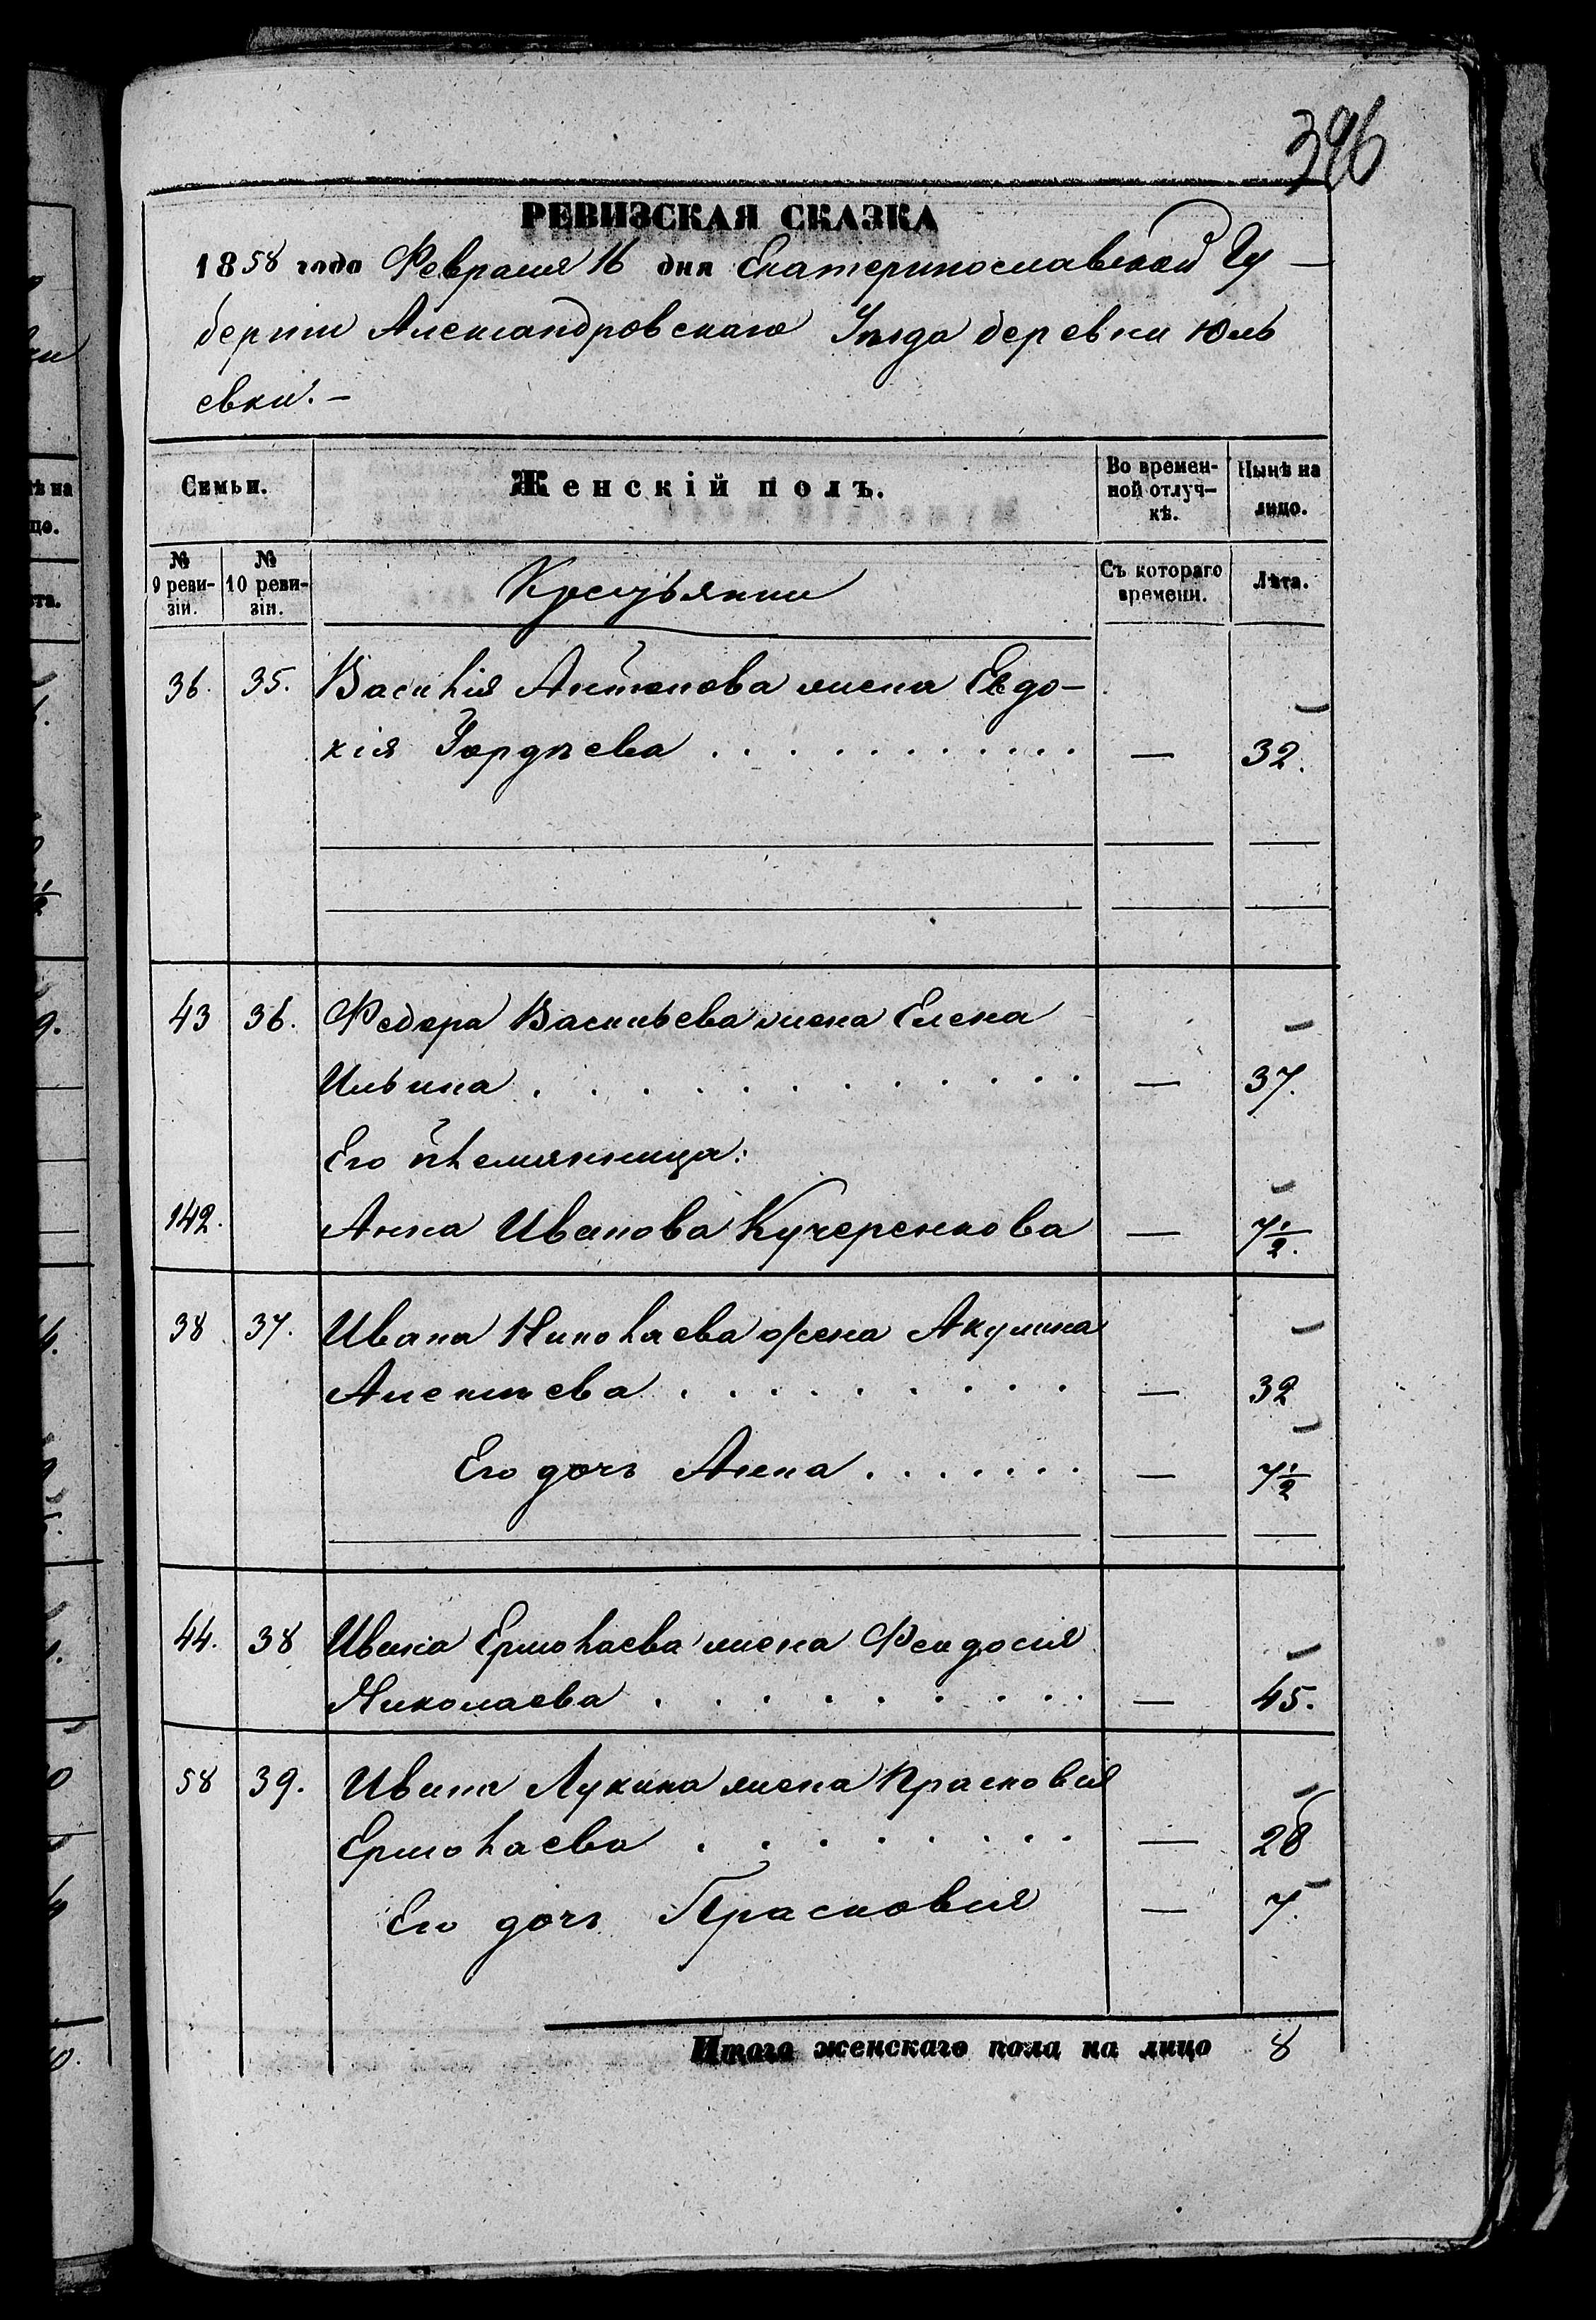 396
РЕВИЗСКАЯ СКАЗКА
1858 года Февраля 16 дня Екатеринославской Гу—
берніи Александровскаго Уѣзда деревни Юль
евки. —
Семьи. Женскій полъ. Во времен-ной отлуч-кѣ. Нынѣ на лицо.
№ 9 реви-зіи. № 10 реви-зіи. Крестьянки Съ котораго времени. Лѣта.
36. 35. Василія Антонова жена Евдо-
кія Гордѣева . . . . . . . . . . . — 32.
43 36. Федора Васильева жена Елена
Ильина . . . . . . . . . . . — 37.
Его племянница:
142. Анна Иванова Кучеренкова — 7½.
38 37. Ивана Николаева жена Акулина
Алексѣева . . . . . . . . . — 32
Его дочь Анна . . . . . . . — 7½
44. 38 Ивана Ермолаева жена Феодосия
Николаева . . . . . . . . . — 45.
58 39. Ивана Лукина жена Прасковия
Ермолаева . . . . . . . . — 28
Его дочь Прасковия — 7.
Итого женскаго пола на лицо 8